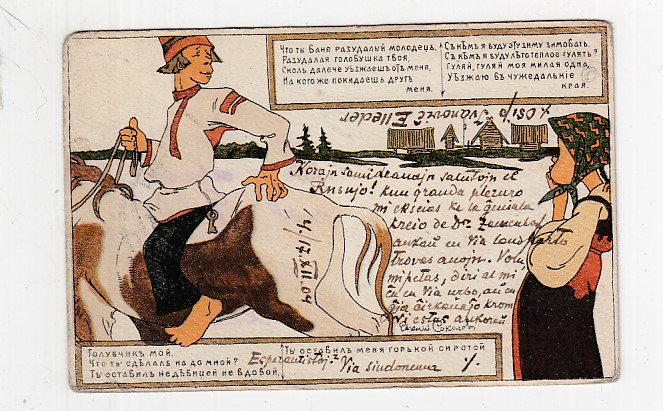 Что ты Ваня разудалый молодецъ,
Разудалая головушка твоя,
Сколь далече уѣзжаешь отъ меня,
На кого же покидаешь другъ
меня.
Съ кѣмъ я буду эту зиму зимовать,
Съ кѣмъ я буду лѣто теплое гулять?
Гуляй, гуляй моя милая одна,
Уѣзжаю въ чужедальнiе
края.
Osip Ivanoviĉ Elleder
Korajn samideanajn salutojn el
Rusujo! kun granda plezuro
mi eksciis ke la geniala
kreio de Dro Zamenhof
ankaŭ en Via lando
trovas anojn. Volu,
mi petas, diri al mi
ĉu en Via urbo, aŭ en
ĝia ĉirkaŭaĵo krom
Vi estas ankoraŭ
4/17 XII 04
Евгенiй Соколовъ
Голубчикъ мой,
Что ты сдѣлалъ надо мной?
Ты оставилъ не дѣвицей не вдовой,
Ты оставилъ меня горькой сиротой
Esperantistoj? Via